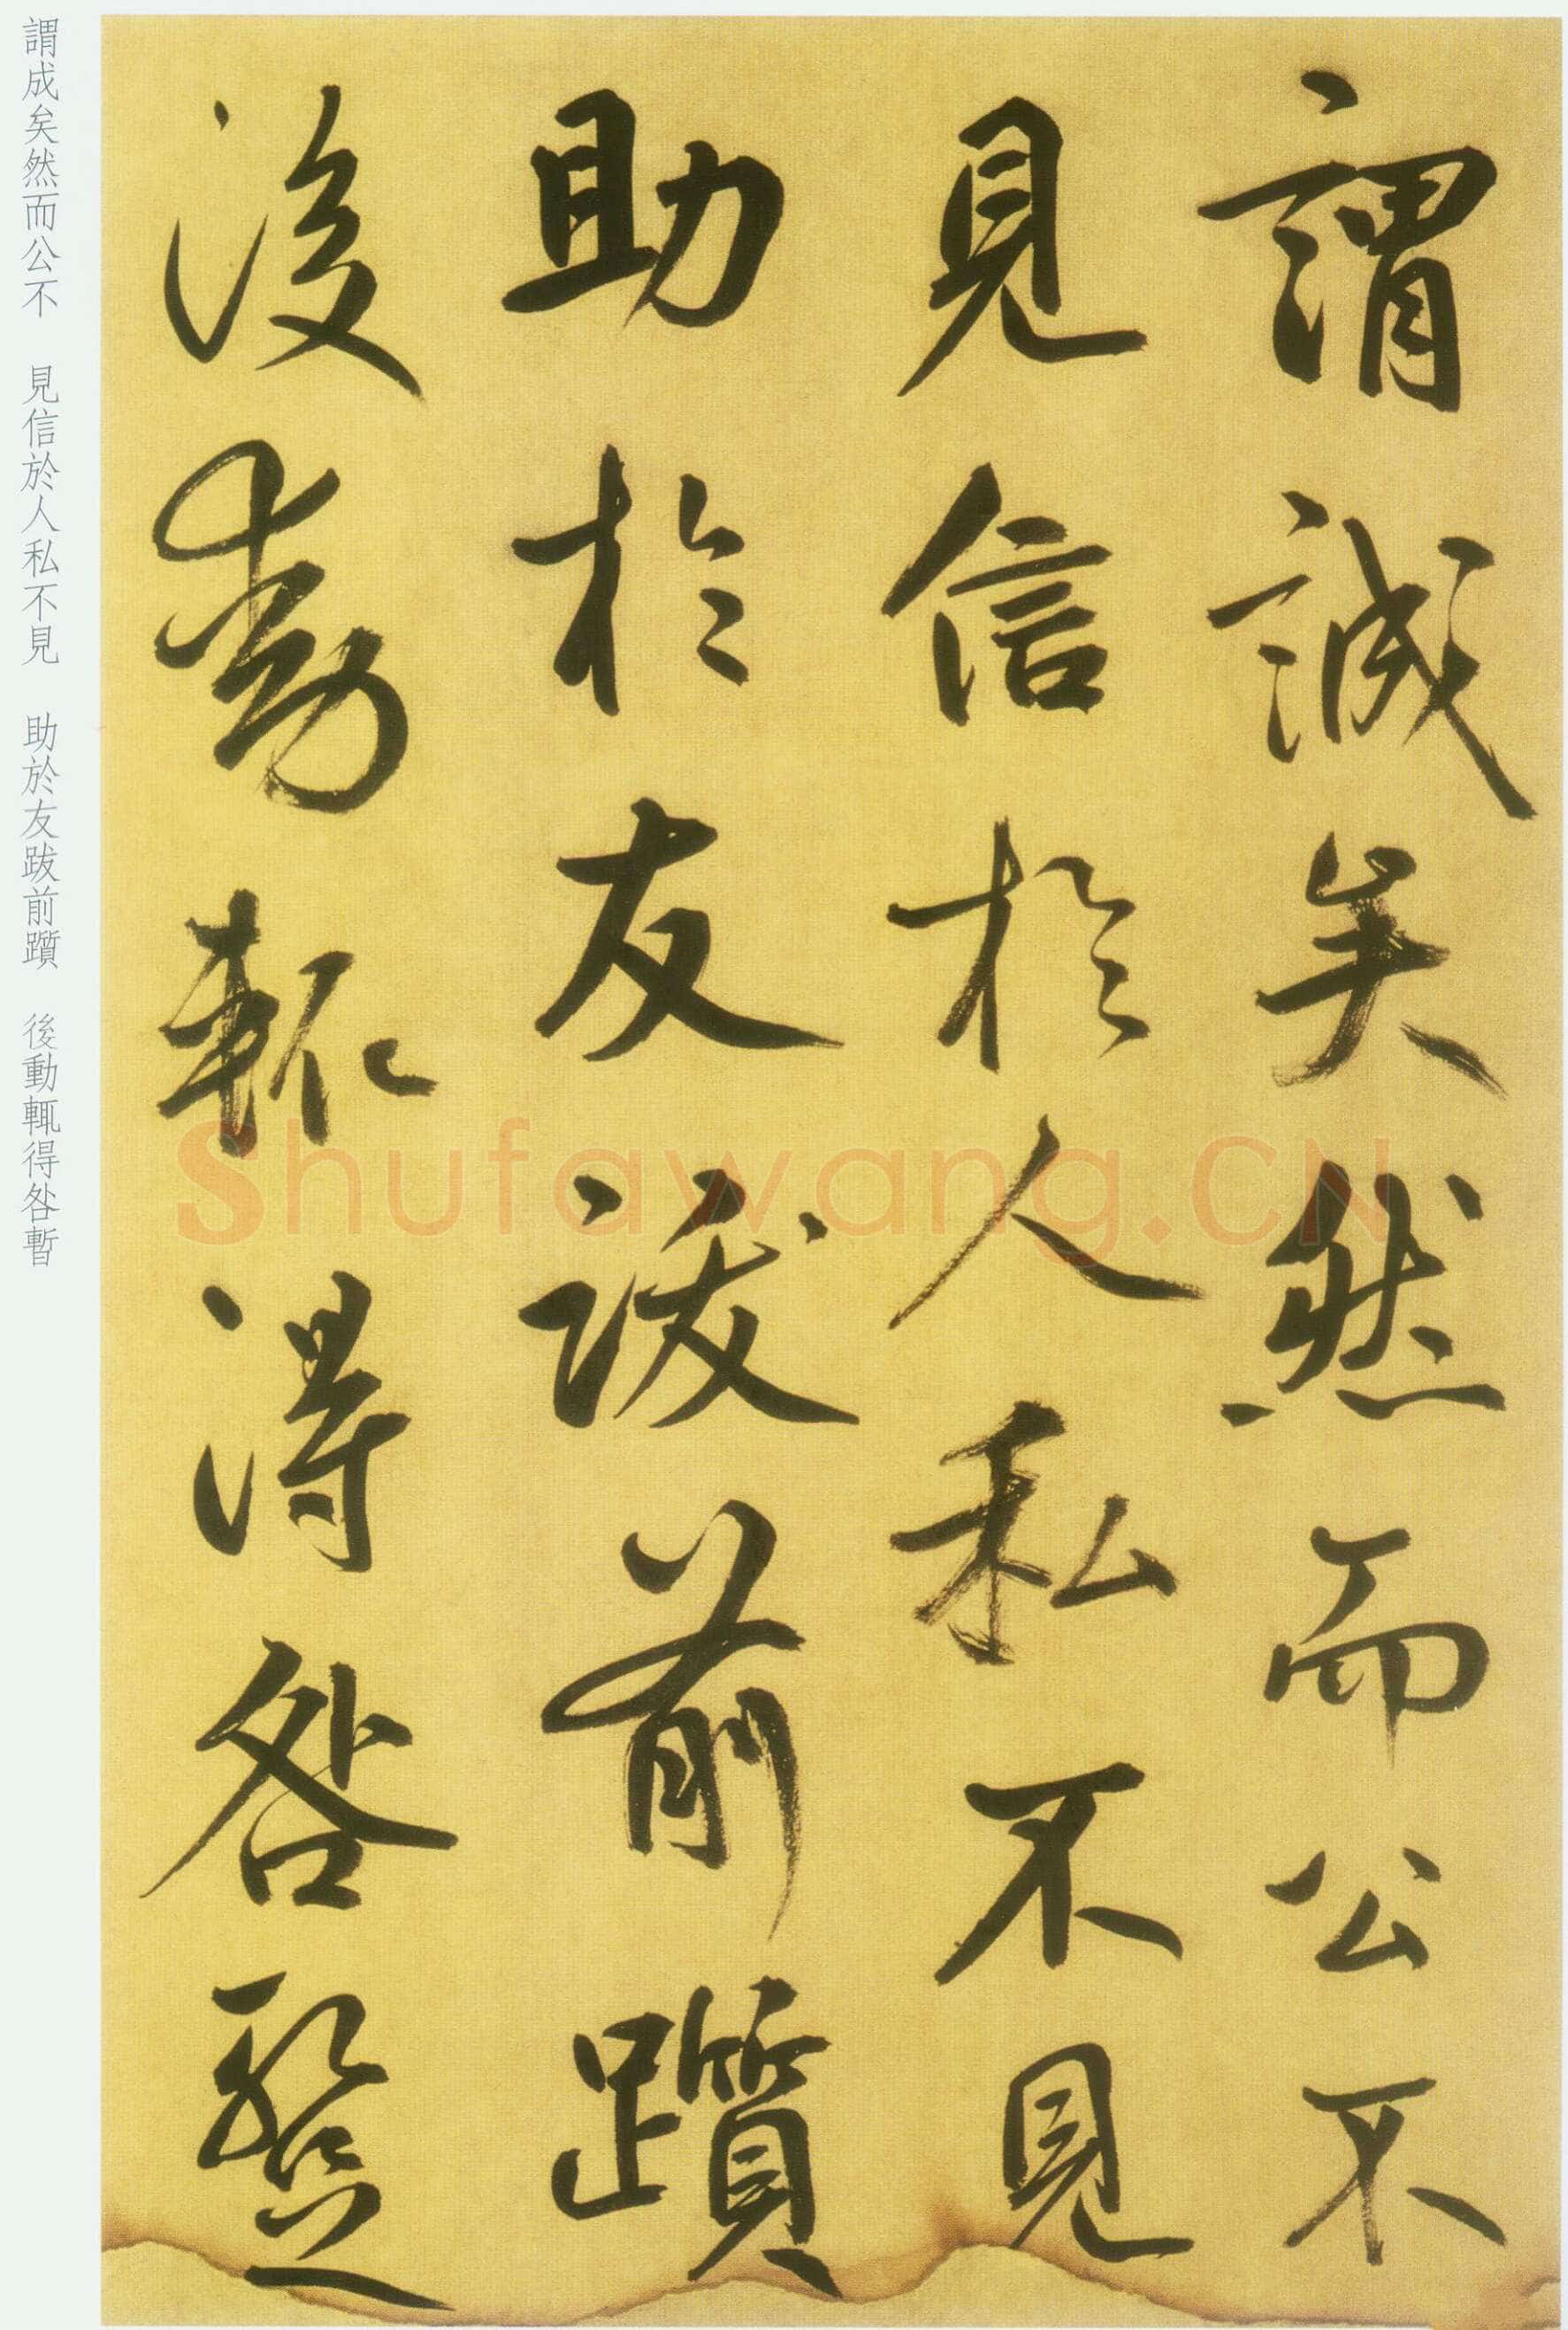 謂誠矣然而公不
見信於人私不見
助於友跋前躓
後動輒得咎暫
謂成矣然而公不 見信於人私不見 助於友跋前躓 後動輒得咎暫
Shufawang.CN